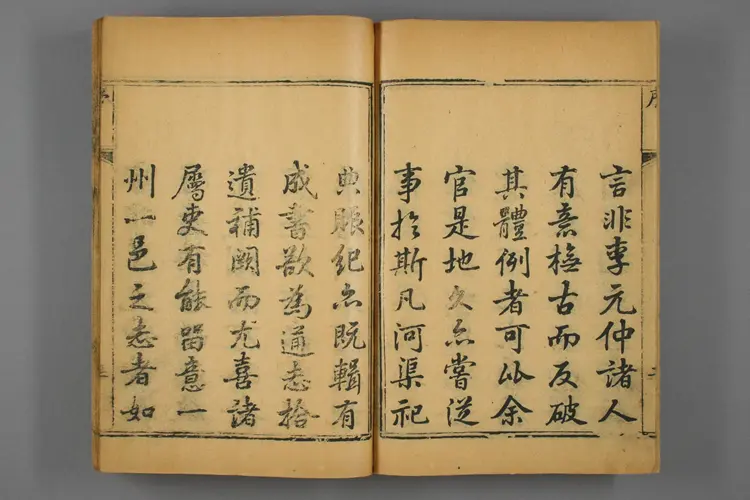 言非李元仲諸人
有意橅古而反破
其體例者可比余
官是地久亦嘗從
事於斯凡河渠祀
典賑紀亦既輯有
成書欲為通志拾
遺補闕而尤喜諸
屬吏有能留意一
州一邑之志者如